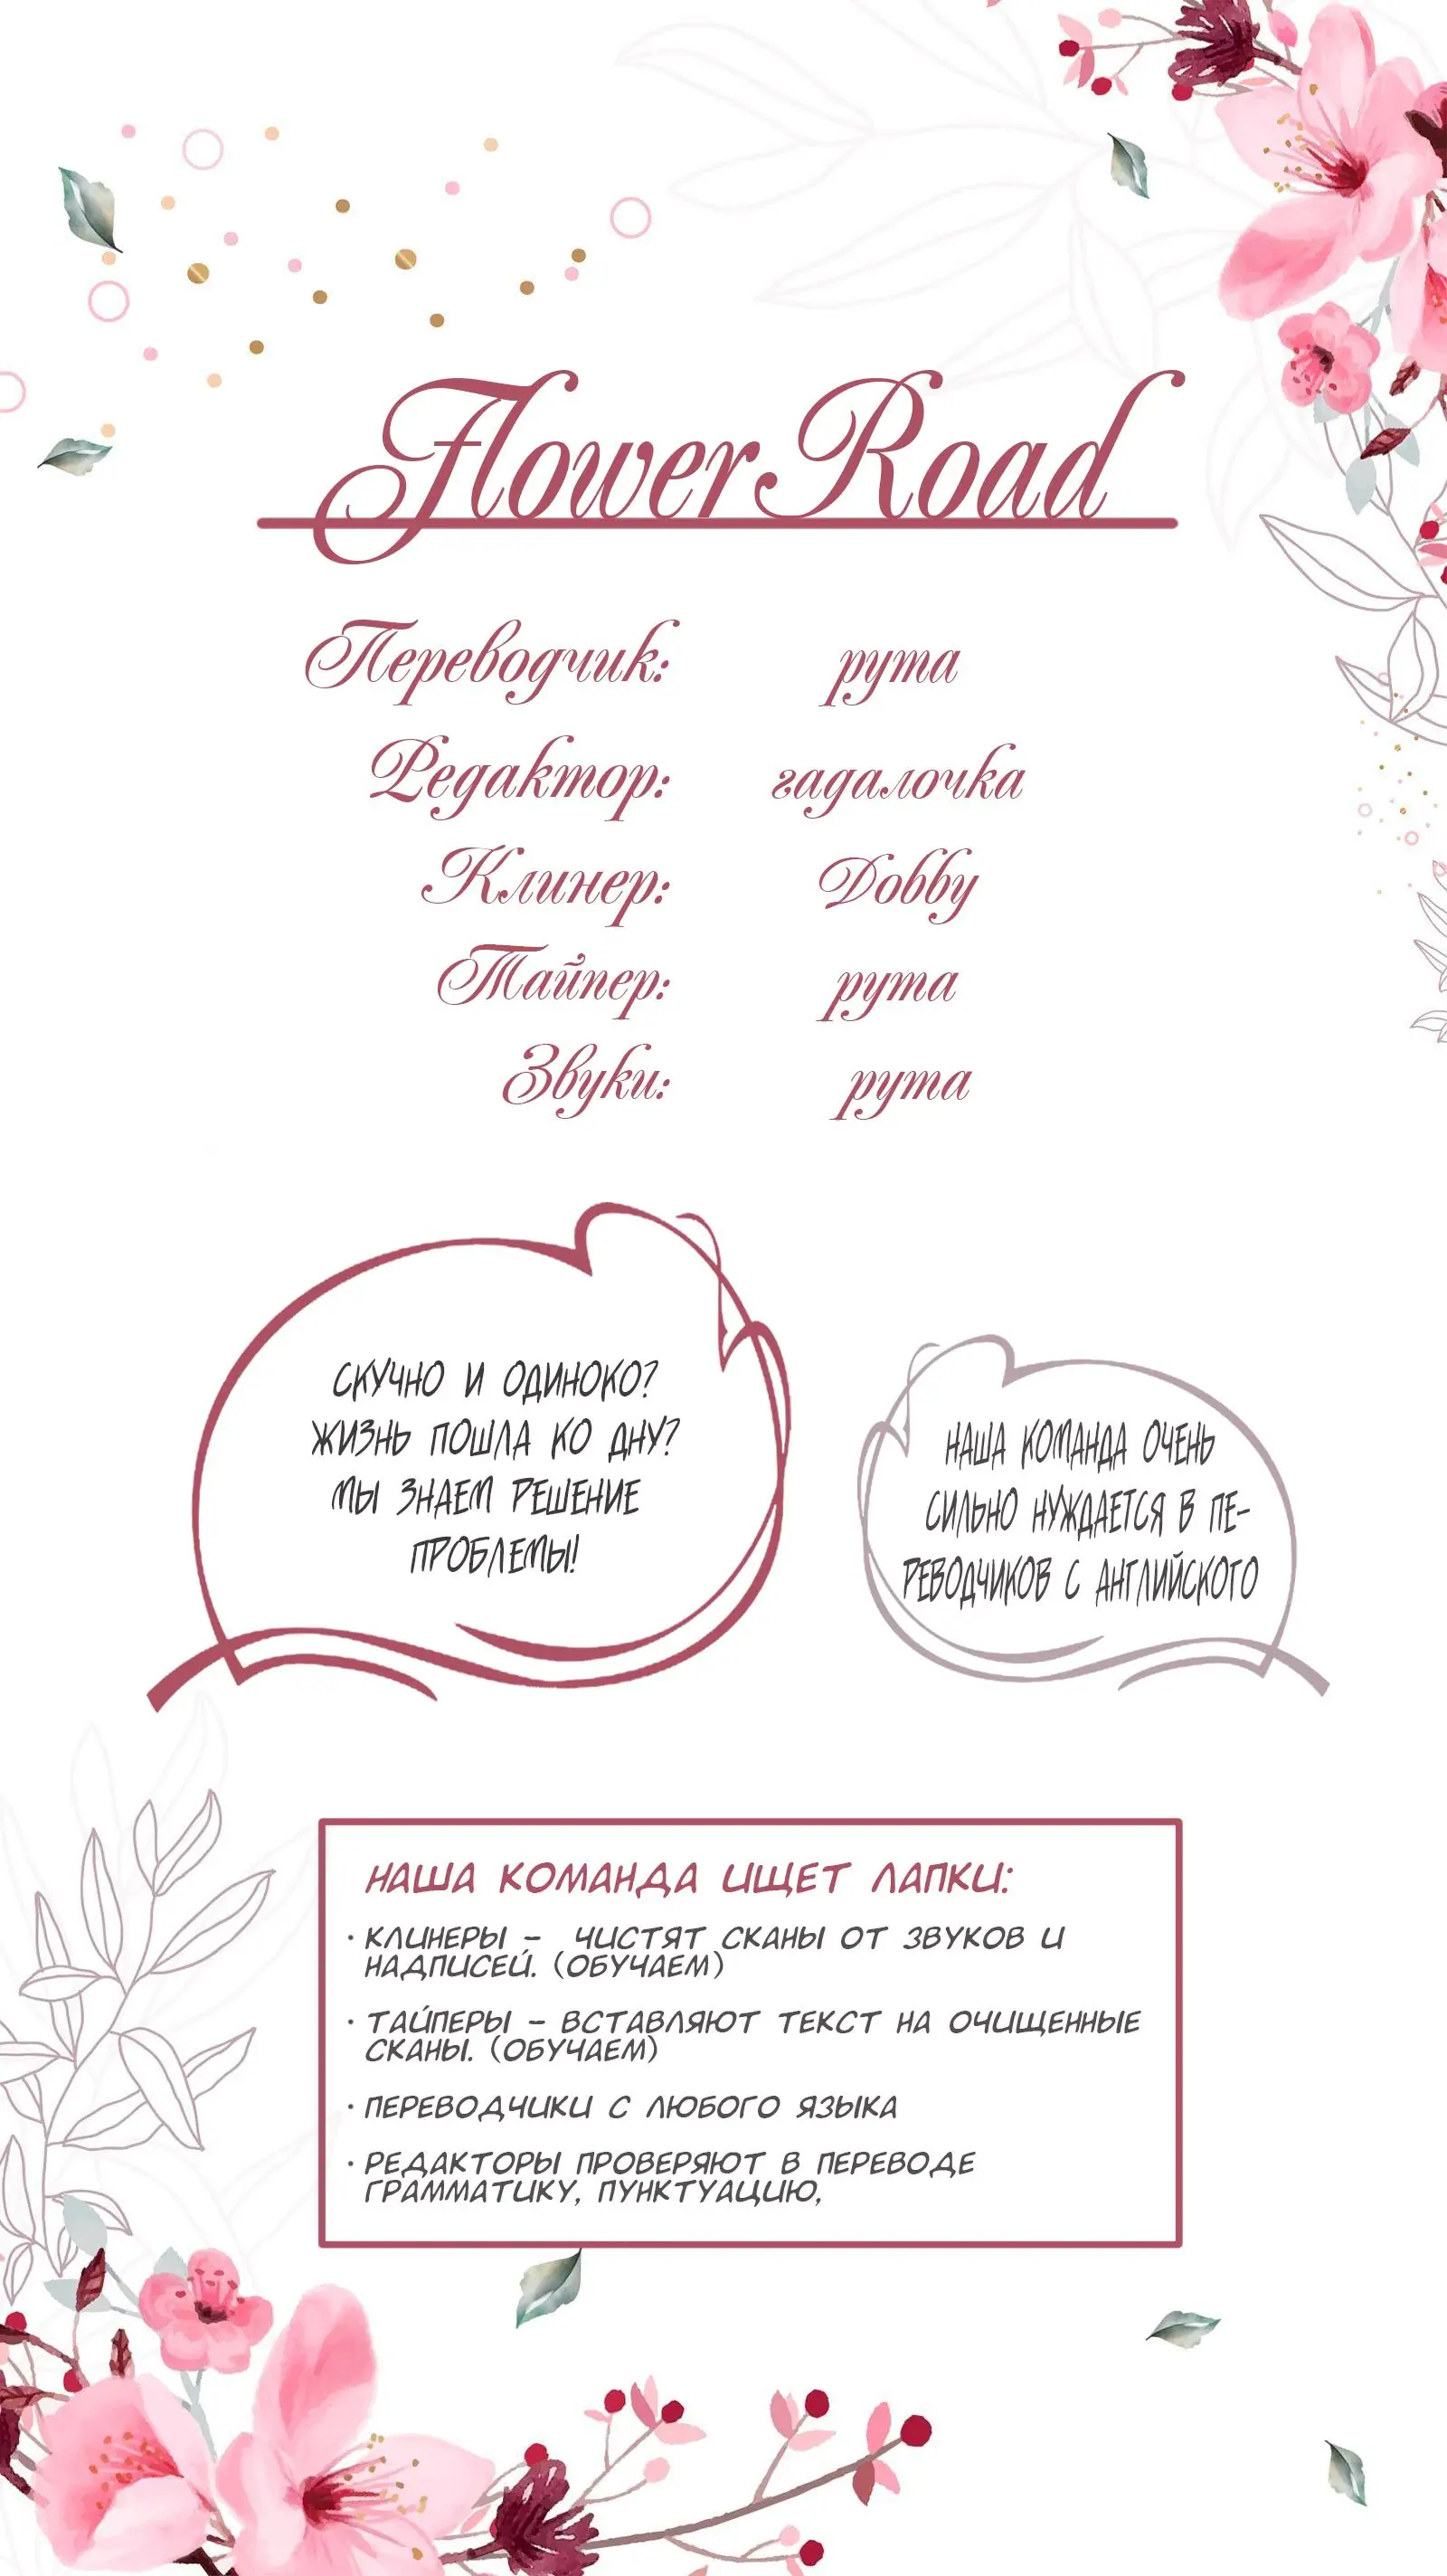 Flower Road
Переводчик: рута
Редактор: гадалочка
Клинер: Dobby
Тайпер: рута
Звуки: рута
СКУЧНО И ОДИНОКО?
ЖИЗНЬ ПОШЛА КО ДНУ?
МЫ ЗНАЕМ РЕШЕНИЕ
ПРОБЛЕМЫ!
НАША КОМАНДА ОЧЕНЬ
СИЛЬНО НУЖДАЕТСЯ В ПЕ-
РЕВОДЧИКОВ С АНГЛИЙСКОГО
НАША КОМАНДА ИЩЕТ ЛАПКИ:
· КЛИНЕРЫ – ЧИСТЯТ СКАНЫ ОТ ЗВУКОВ И
НАДПИСЕЙ. (ОБУЧАЕМ)
· ТАЙПЕРЫ – ВСТАВЛЯЮТ ТЕКСТ НА ОЧИЩЕННЫЕ
СКАНЫ. (ОБУЧАЕМ)
· ПЕРЕВОДЧИКИ С ЛЮБОГО ЯЗЫКА
· РЕДАКТОРЫ ПРОВЕРЯЮТ В ПЕРЕВОДЕ
ГРАММАТИКУ, ПУНКТУАЦИЮ,